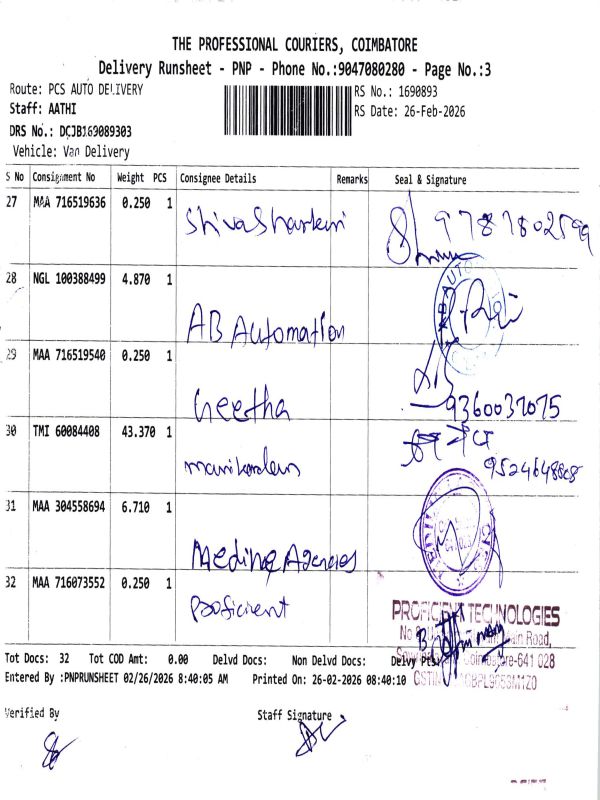 THE PROFESSIONAL COURIERS, COIMBATORE
Delivery Runsheet - PNP - Phone No.:9047080280 - Page No.:3
Route: PCS AUTO DELIVERY
RS No.: 1690893
Staff: AATHI
RS Date: 26-Feb-2026
DRS No.: DCJB169089303
Vehicle: Van Delivery
S No Consignment No Weight PCS Consignee Details Remarks Seal & Signature
27 MAA 716519636 0.250 1 Shivashankari
28 NGL 100388499 4.870 1 AB Automation
29 MAA 716519540 0.250 1 Geetha 9360037075
30 TMI 60084408 43.370 1 manikandan
31 MAA 304558694 6.710 1 Medine Agencies
32 MAA 716073552 0.250 1 proficient
PROFICIENT TECHNOLOGIES
Road,
Coimbatore-641 028
Tot Docs: 32 Tot COD Amt: 0.00 Delvd Docs: Non Delvd Docs: Delvy
Entered By :PNPRUNSHEET 02/26/2026 8:40:05 AM Printed On: 26-02-2026 08:40:10
Verified By Staff Signature